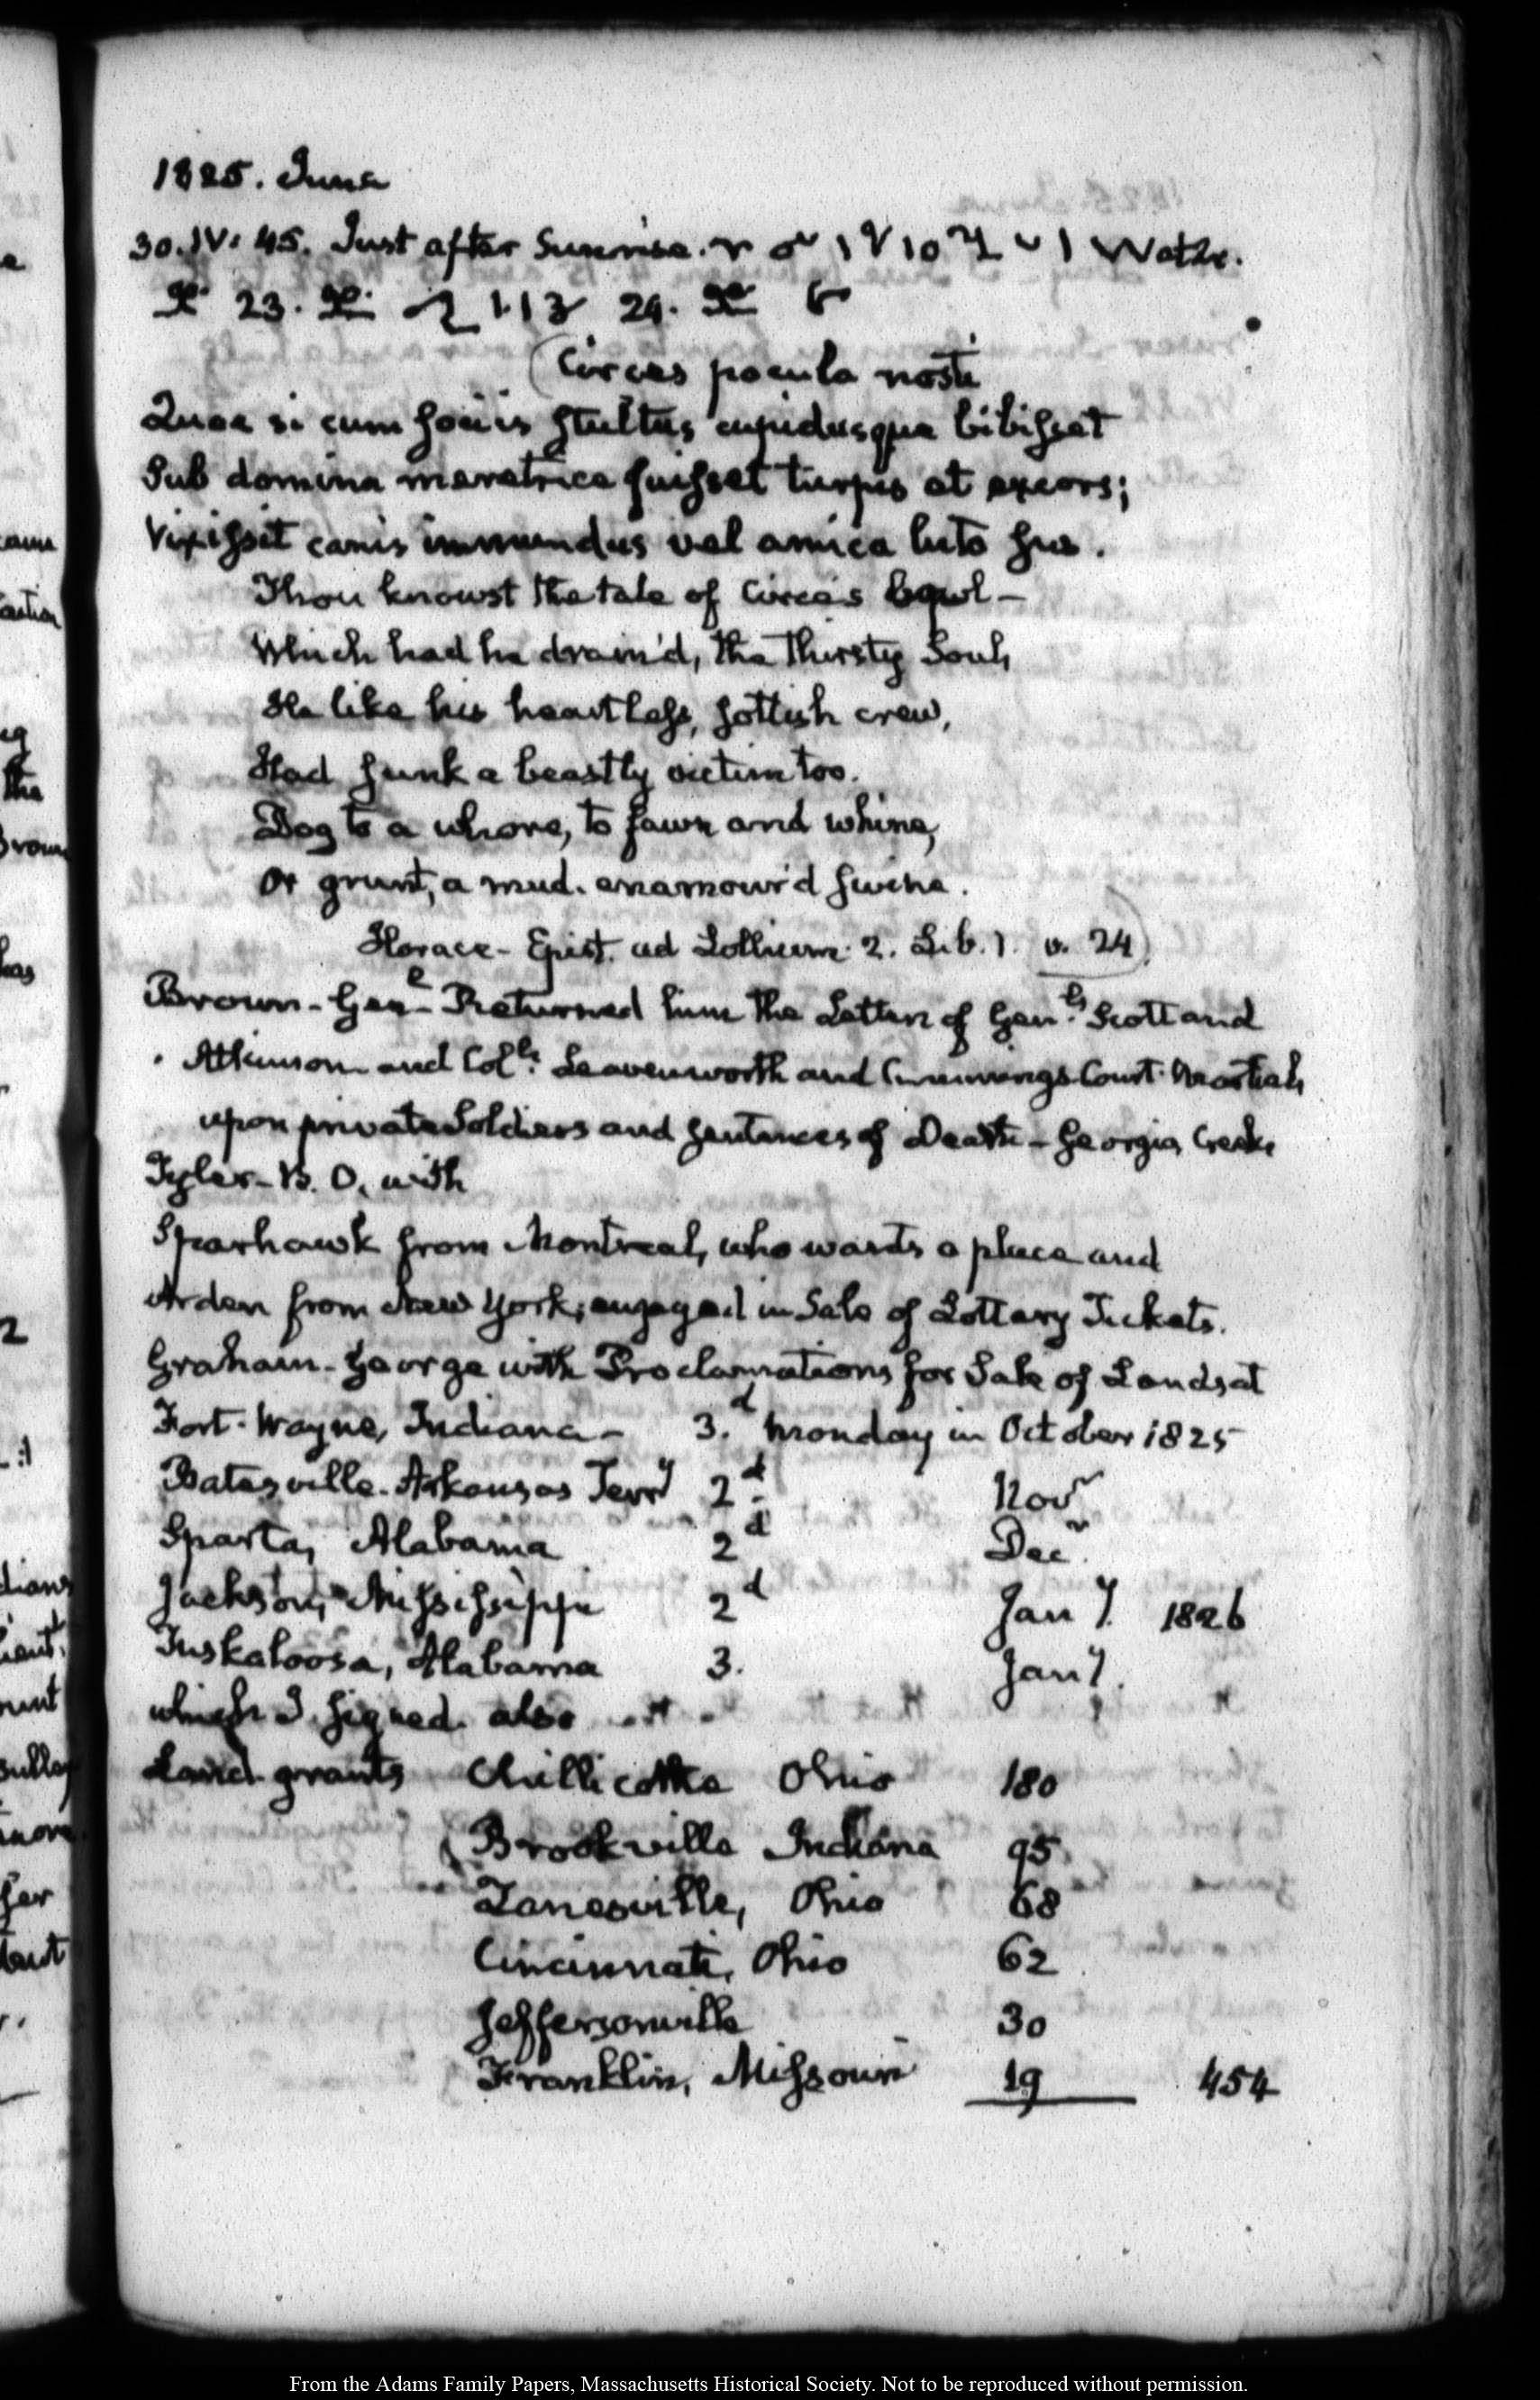 1825. June
30. IV: 45. Just after Sunrise.
23. 24.
(Circes pocula nosti
Quae si cum sociis stultus cupidusque bibisset
Sub domina meretrice fuisset turpis et excors;
Vixisset canis immundus vel amica luto sus.
Thou knowst the tale of Circe's bowl—
Which had he drain'd, the thirsty Soul,
He like his heartless, sottish crew,
Had sunk a beastly victim too.
Dog to a whore, to fawn and whine,
Or grunt, a mud-enamour'd swine.
Horace- Epist. ad Lollium. 2. Lib. 1. v. 24)
Brown- Genl. Returned him the Letters of Genls. Scott and
Atkinson and Cols. Leavenworth and Cummings Court-Martials
upon private Soldiers and sentences of Death- Georgia, Creeks
Tyler- B. O. with
Sparhawk from Montreal, who wants a place and
Arden from New York; engaged in Sale of Lottery Tickets.
Graham- George with Proclamations for Sale of Lands at
Fort-Wayne, Indiana- 3.d Monday in October 1825
Batesville- Arkansas Terry 2d. Novr
Sparta, Alabama 2d Decr.
Jackson, Mississippi 2d Jany. 1826
Tuskaloosa, Alabama 3. Jany.
which I signed. also
Land-grants Chillicothe Ohio 180
Brookville Indiana 95
Zanesville, Ohio 68
Cincinnati, Ohio 62
Jeffersonville 30
Franklin, Missouri 19 454
From the Adams Family Papers, Massachusetts Historical Society. Not to be reproduced without permission.